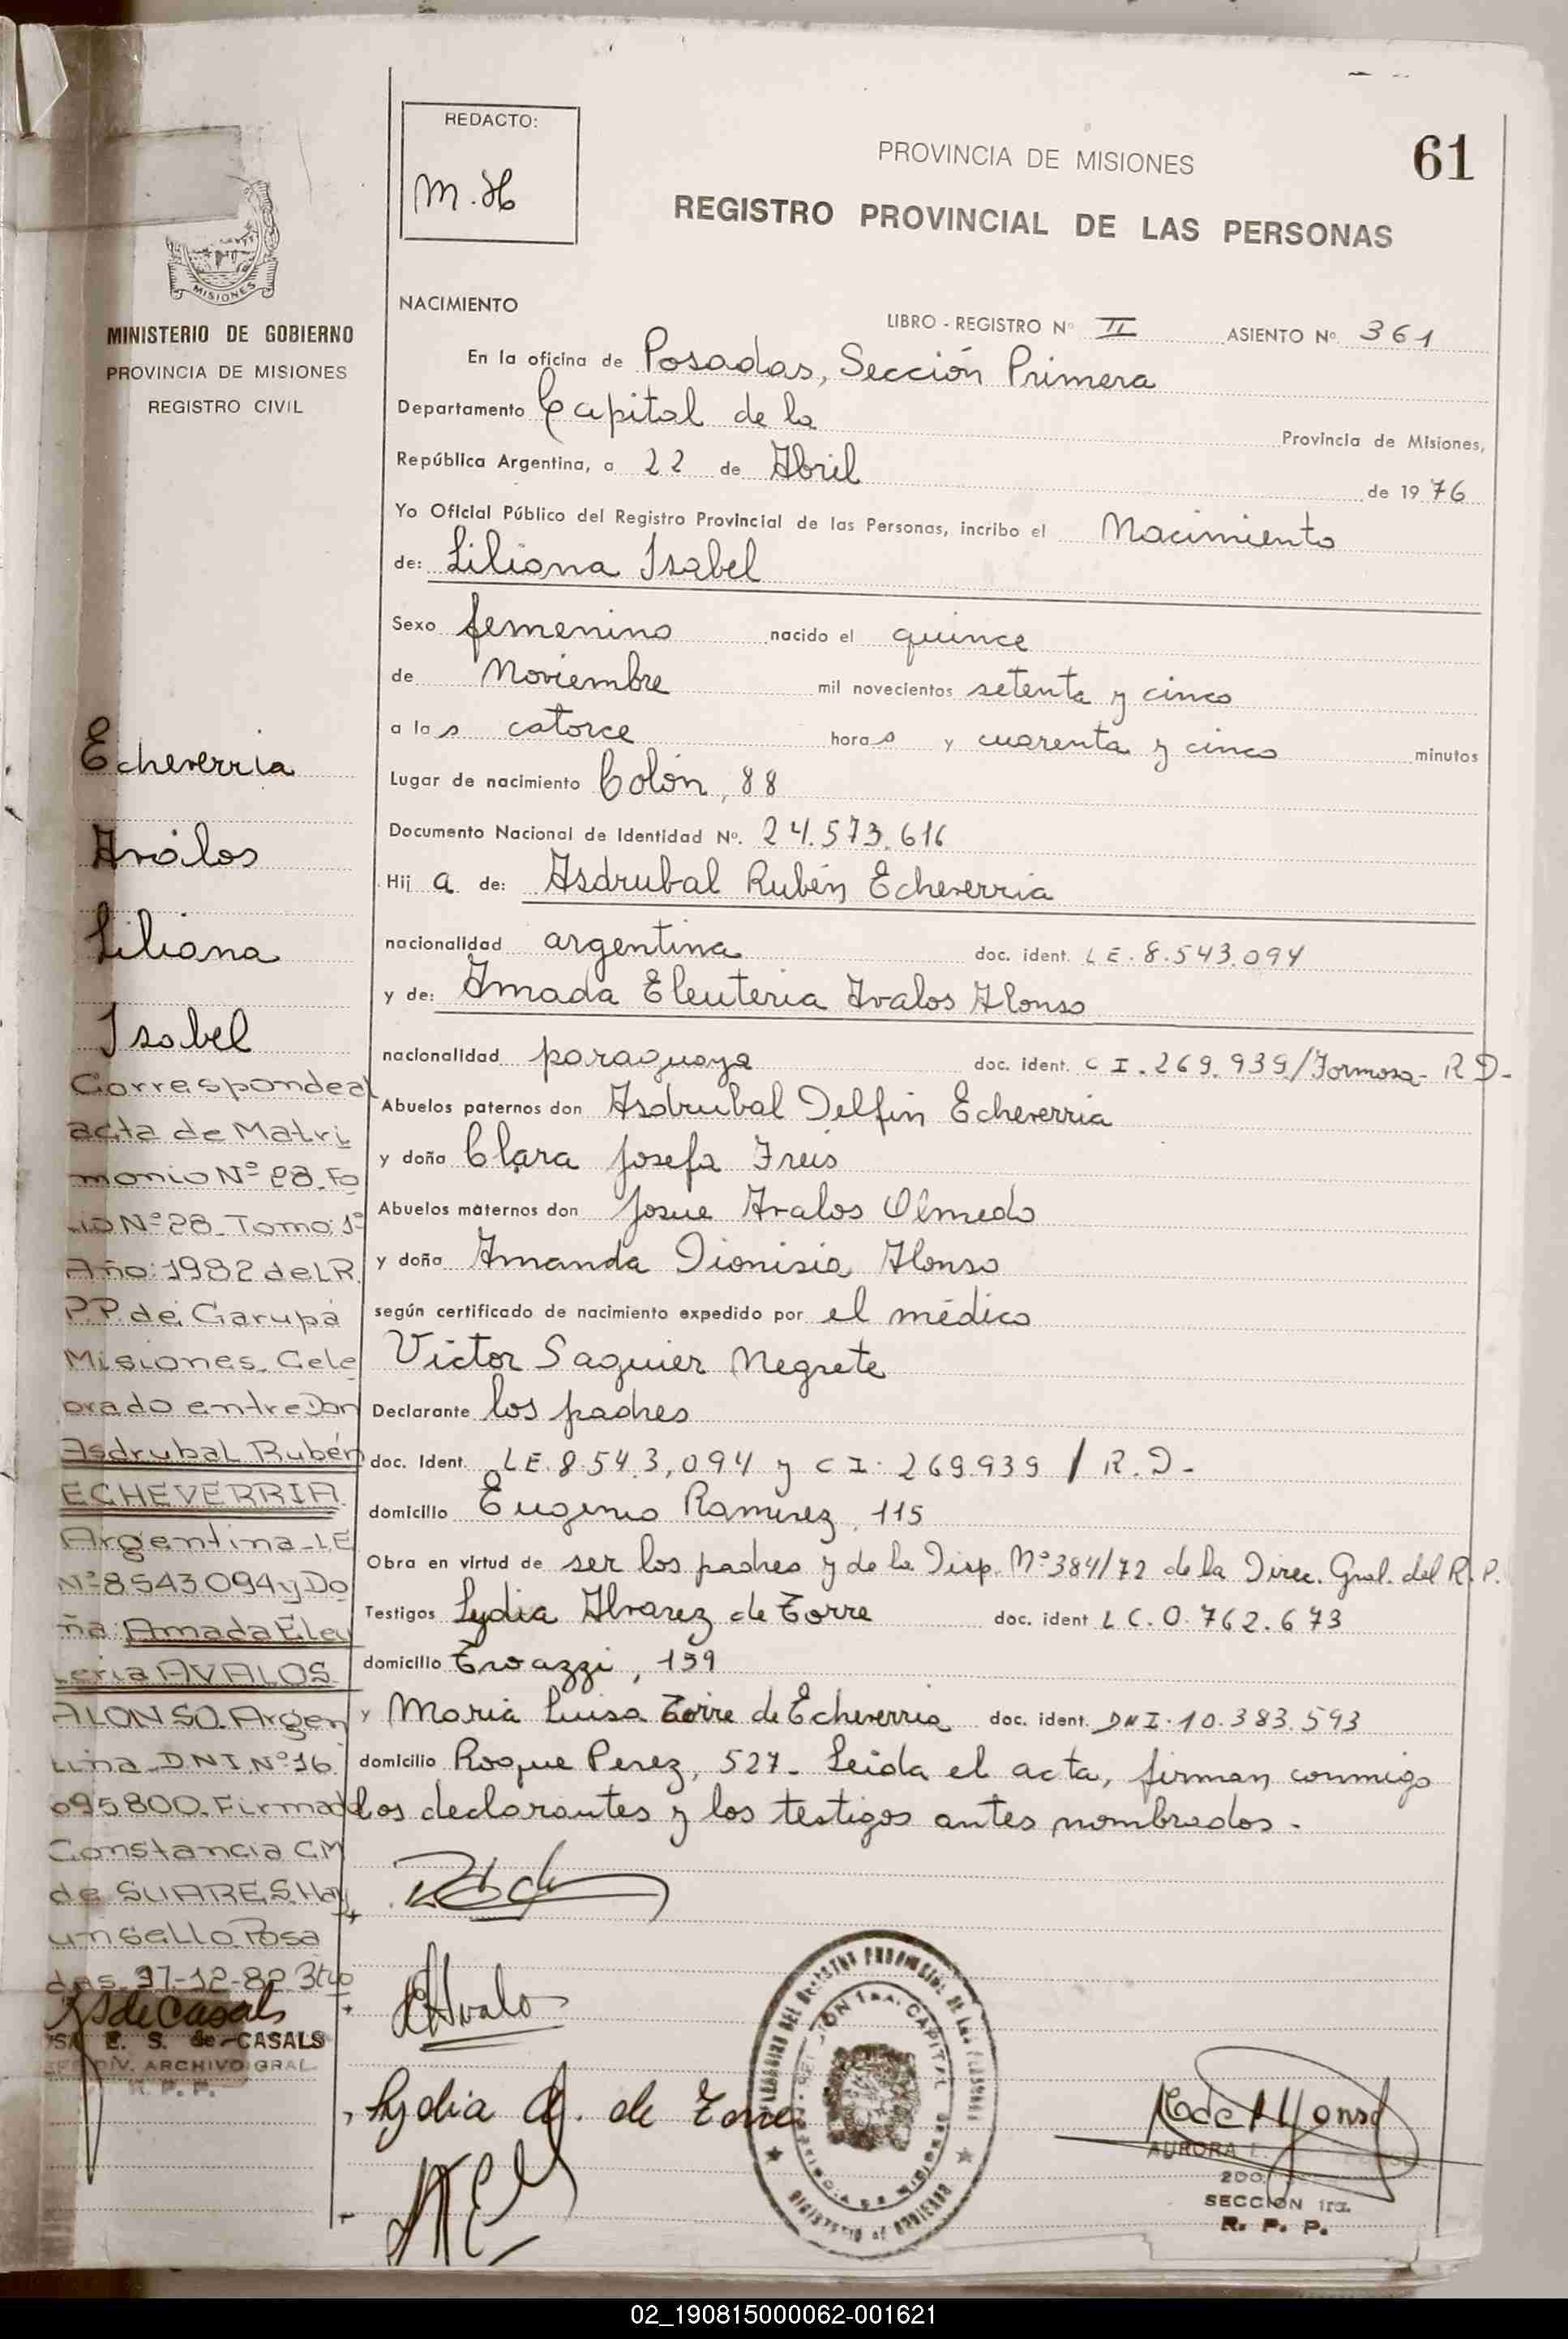 REDACTO:
M. H
61
PROVINCIA DE MISIONES
REGISTRO PROVINCIAL DE LAS PERSONAS
MISIONES
MINISTERIO DE GOBIERNO
PROVINCIA DE MISIONES
REGISTRO CIVIL
NACIMIENTO
LIBRO - REGISTRO Nº II ASIENTO Nº 361
En la oficina de Posadas, Sección Primera
Departamento Capital de la Provincia de Misiones,
República Argentina, a 22 de Abril de 1976
Yo Oficial Público del Registro Provincial de las Personas, incribo el Nacimiento
de: Liliana Isabel
Sexo femenino nacido el quince
de Noviembre mil novecientos setenta y cinco
a las catorce horas y cuarenta y cinco minutos
Lugar de nacimiento Colón, 88
Documento Nacional de Identidad Nº. 24.573.616
Hija de: Asdrubal Rubén Echeverria
nacionalidad argentina doc. ident. LE. 8.543.094
y de: Amada Eleuteria Avalos Alonso
nacionalidad paraguaya doc. ident. C I. 269.939/Formosa- R D-
Abuelos paternos don Asdrubal Delfin Echeverria
y doña Clara Josefa Freis
Abuelos maternos don Josue Avalos Olmedo
y doña Amanda Dionisia Alonso
según certificado de nacimiento expedido por el médico
Victor Saguier Negrete
Declarante los padres
doc. Ident. LE. 8.543,094 y C I. 269.939 / R. D-
domicilio Eugenio Ramirez, 115
Obra en virtud de ser los padres y de la Disp. Nº 384/72 de la Direc. Gral. del R. P.
Testigos Lydia Alvarez de Torre doc. ident L C. 0.762.673
domicilio Troazzi, 159
y Maria Luisa Torre de Echeverria doc. ident. DNI. 10.383.593
domicilio Roque Perez, 527- Leida el acta, firman conmigo
los declarantes y los testigos antes nombrados.-
Echeverria
Aválos
Liliana
Isabel
Corresponde al
acta de Matri
monio Nº 28. Fo
lio Nº 28. Tomo: 1º
Año: 1982 del R.
P.P. de Garupá
Misiones. Cele
brado entre Don
Asdrubal Rubén
ECHEVERRIA
Argentina-LE
Nº 8543.094 y Do
ña: Amada Eleu
teria AVALOS
ALONSO. Argen
tina. DNI. Nº 16.
095800. Firmado
Constancia C.M
de SUARES. Hay
un sello. Posa
das
de Casals
E. S. de CASALS
DIV. ARCHIVO GRAL.
R. P. P.
Avalo
Lydia A. de Torre
SECCION 1ra. CAPITAL
AURORA
SECCION 1ra.
R. P. P.
02_190815000062-001621